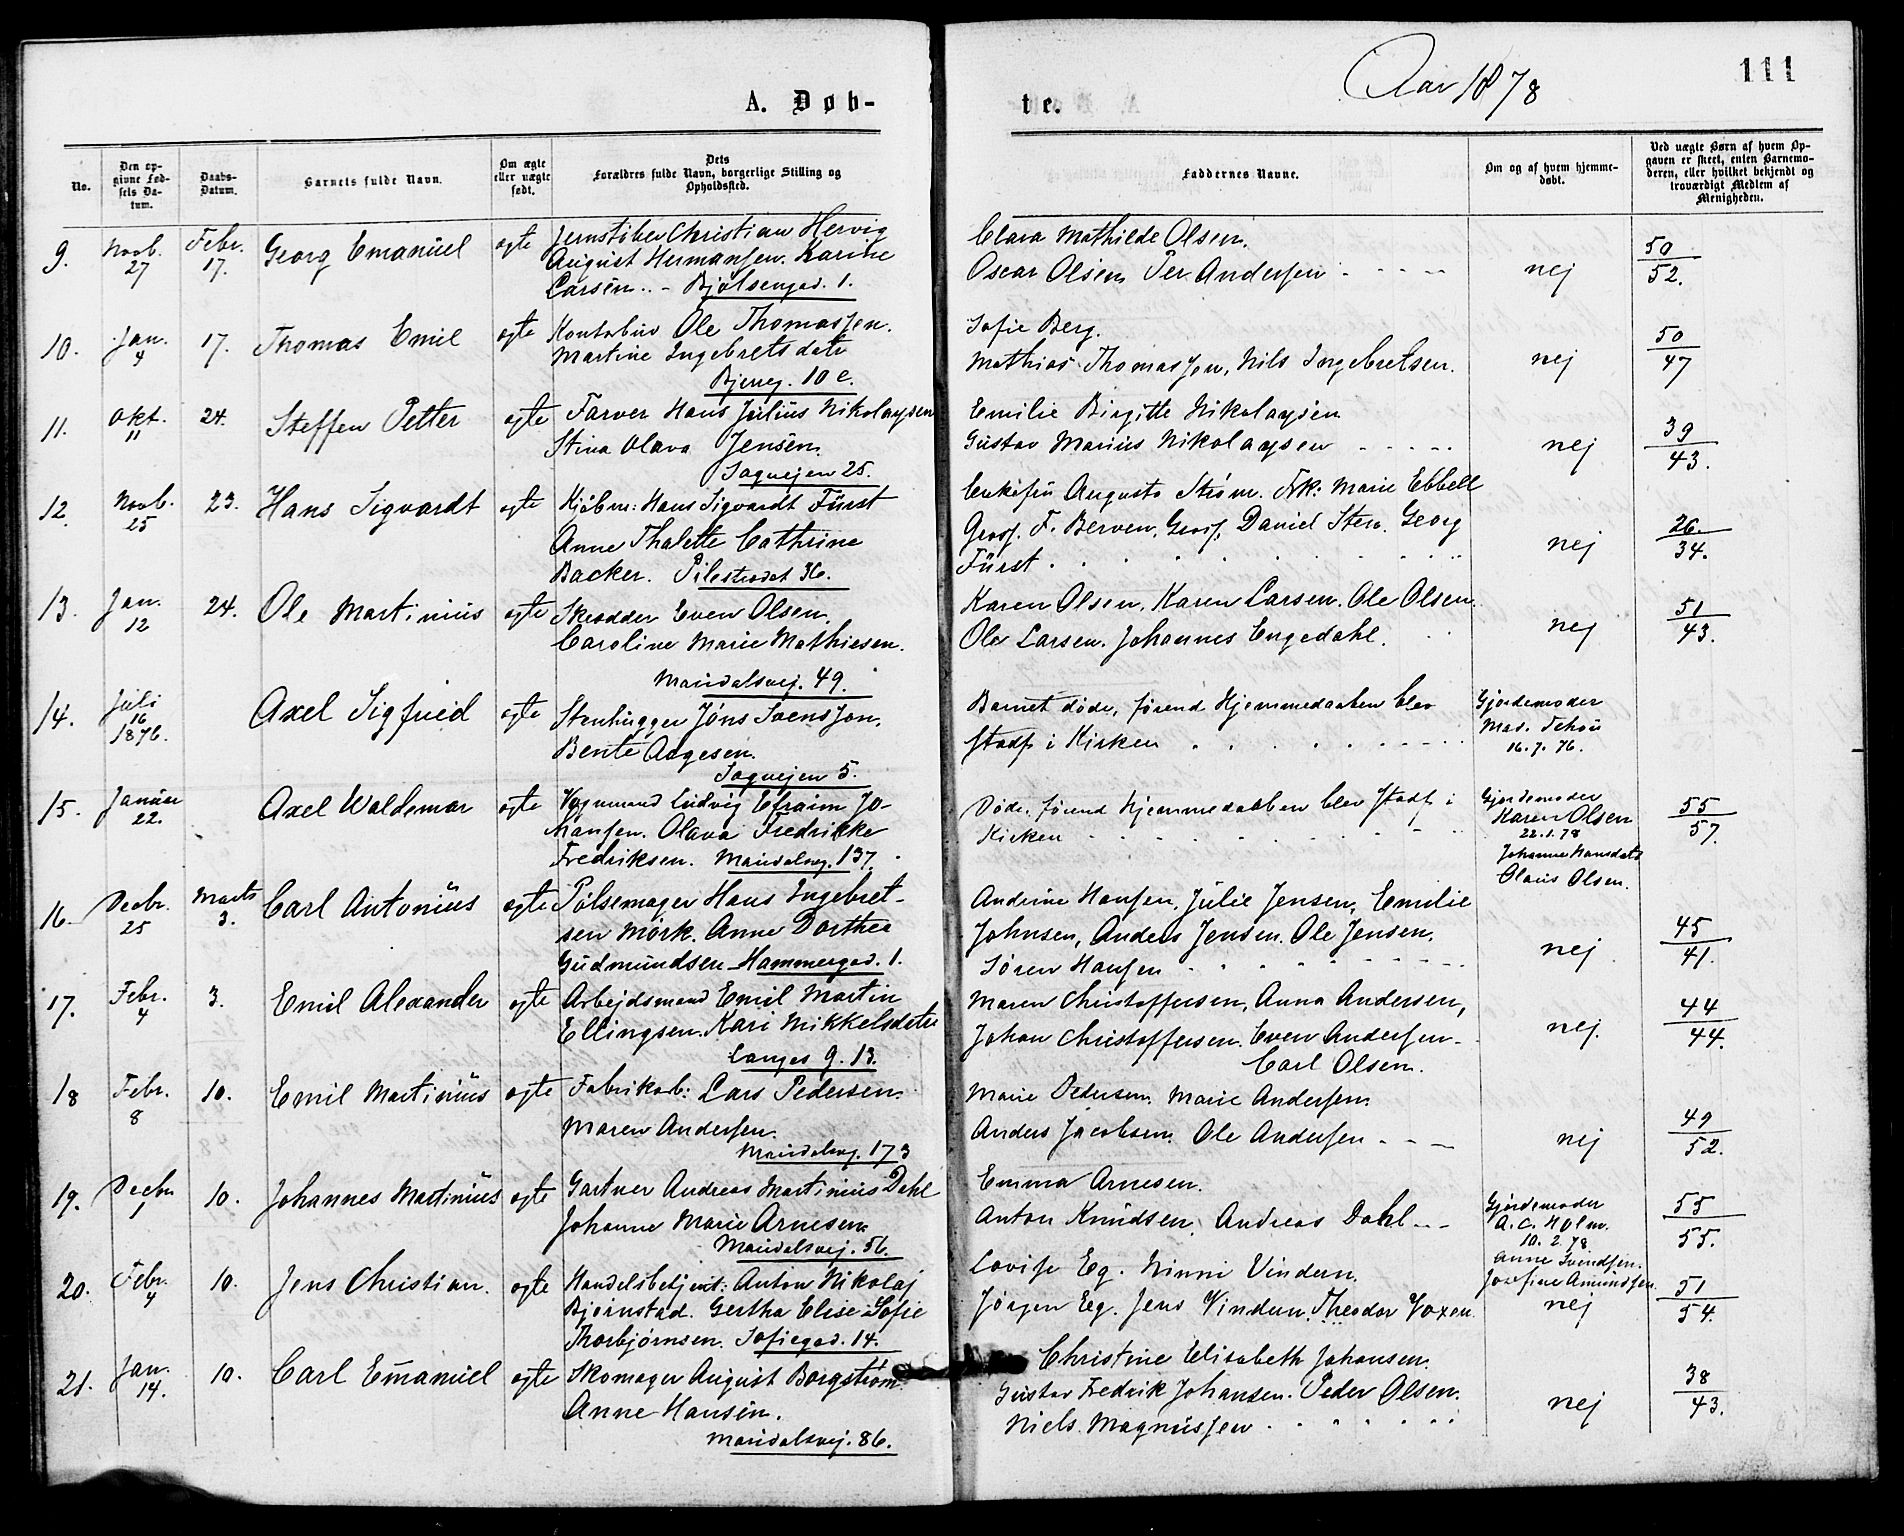 Aar 1878
111
A. Døb-
te.
No.
Den op-
givne Fød-
sels Da-
tum.
Daabs-
Datum.
Barnets fulde Navn.
Om ægte
eller uægte
født.
Dets
Forældres fulde Navn, borgerlige Stilling og
Opholdssted.
Faddernes Navne.
Om og af hvem hjemme-
døbt.
Ved uægte Børn af hvem Op-
gaven er skeet, enten Barnemo-
deren, eller hvilket bekjendt og
troværdigt Medlem af
Menigheden.
9. Novb. 27 Febr. 17. Georg Emanuel ægte
Jernstøber Christian Hervig
August Hermansen. Karine
Larsen. - Bjølsengad. 1.
Clara Mathilde Olsen.
Oscar Olsen Per Andersen
nej
50
52.
10. Jan. 4 17. Thomas Emil ægte
Kontorbud Ole Thomassen.
Martine Ingebretsdatr
Bjerreg. 10 c.
Sofie Berg.
Mathias Thomassen, Nils Ingebretsen.
nej
50
47
11. Okt. 11 24. Steffen Petter ægte
Farver Hans Julius Nikolaysen
Stina Olava Jensen.
Sagvejen 25.
Emilie Birgitte Nikolaysen
Gustav Marius Nikolaysen
nej
39
43.
12. Novb. 25 23. Hans Sigvardt ægte
Kjøbm: Hans Sigvardt Fürst
Anne Thalette Cathrine
Backer. Pilestrædet 36.
Enkefru Augusta Strøm. Frk: Marie Ebbell
Gross. F. Berven, Gross. Daniel Steen. Georg
Fürst
nej
26
34.
13. Jan. 12 24. Ole Martinius ægte
Skrædder Even Olsen.
Caroline Marie Mathiesen.
Maridalsvej. 49.
Karen Olsen, Karen Larsen. Ole Olsen.
Ole Larsen. Johannes Engedahl.
nej
51
43.
14. Juli 16 1876. Axel Sigfried ægte
Stenhugger Jöns Svensson,
Bente Aagesen.
Sagvejen 5.
Barnet døde, førend Hjemmedaaben blev
stadf. i Kirken
Gjordemoder
Mad.
16.7.76.
15. Januar 22. Axel Waldemar ægte
Vognmand Ludvig Efraim Jo-
hansen. Olava Fredrikke
Fredriksen. Maridalsvej. 137.
Døde, førend Hjemmedaaben blev stadf. i
Kirken
Gjordemoder
Karen Olsen
22.1.78
Johanne Hansdatr
Olaus Olsen.
55
57.
16. Decbr. 25 Marts 3. Carl Antonius ægte
Pølsemager Hans Ingebret-
sen Mørk. Anne Dorthea
Gudmundsen Hammergad. 1.
Andrine Hansen, Julie Jensen, Emilie
Johnsen, Anders Jensen. Ole Jensen.
Søren Hansen
nej
45
41.
17. Febr. 4 3. Emil Alexander ægte
Arbejdsmand Emil Martin
Ellingsen. Kari Mikkelsdatr
Langes g. 13.
Maren Christoffersen, Anna Andersen,
Johan Christoffersen. Even Andersen
Carl Olsen.
nej.
44
44.
18 Febr. 8 10. Emil Martinius ægte
Fabrikarb: Lars Pedersen.
Maren Andersen.
Maridalsvej. 173
Marie Pedersen. Marie Andersen.
Anders Jacobsen. Ole Andersen
nej
49
52.
19. Decbr. 1 10. Johannes Martinius ægte
Gartner Andreas Martinius Dahl
Johanne Marie Arnesen.
Maridalsvej. 56.
Emma Arnesen.
Anton Knudsen, Andreas Dahl
Gjordemoder
A. C. Holm.
10.2.78
Anne Svendsen.
Josefine Amundsen.
55
55.
20. Febr. 4 10. Jens Christian. ægte
Handelsbetjent: Anton Nikolaj
Bjørnstad. Gertha Elise Sofie
Thorbjørnsen. Sofiegad. 14.
Lovise Eg. Ninni Vindern.
Jørgen Eg. Jens Vindern. Theodor Voxen.
nej
51
54.
21. Jan. 14. 10. Carl Emanuel ægte
Skomager August Borgstrøm.
Anne Hansen.
Maridalsvej. 86.
Christine Elisabeth Johansen.
Gustav Fredrik Johansen. Peder Olsen.
Niels Magnussen
nej
38
43.